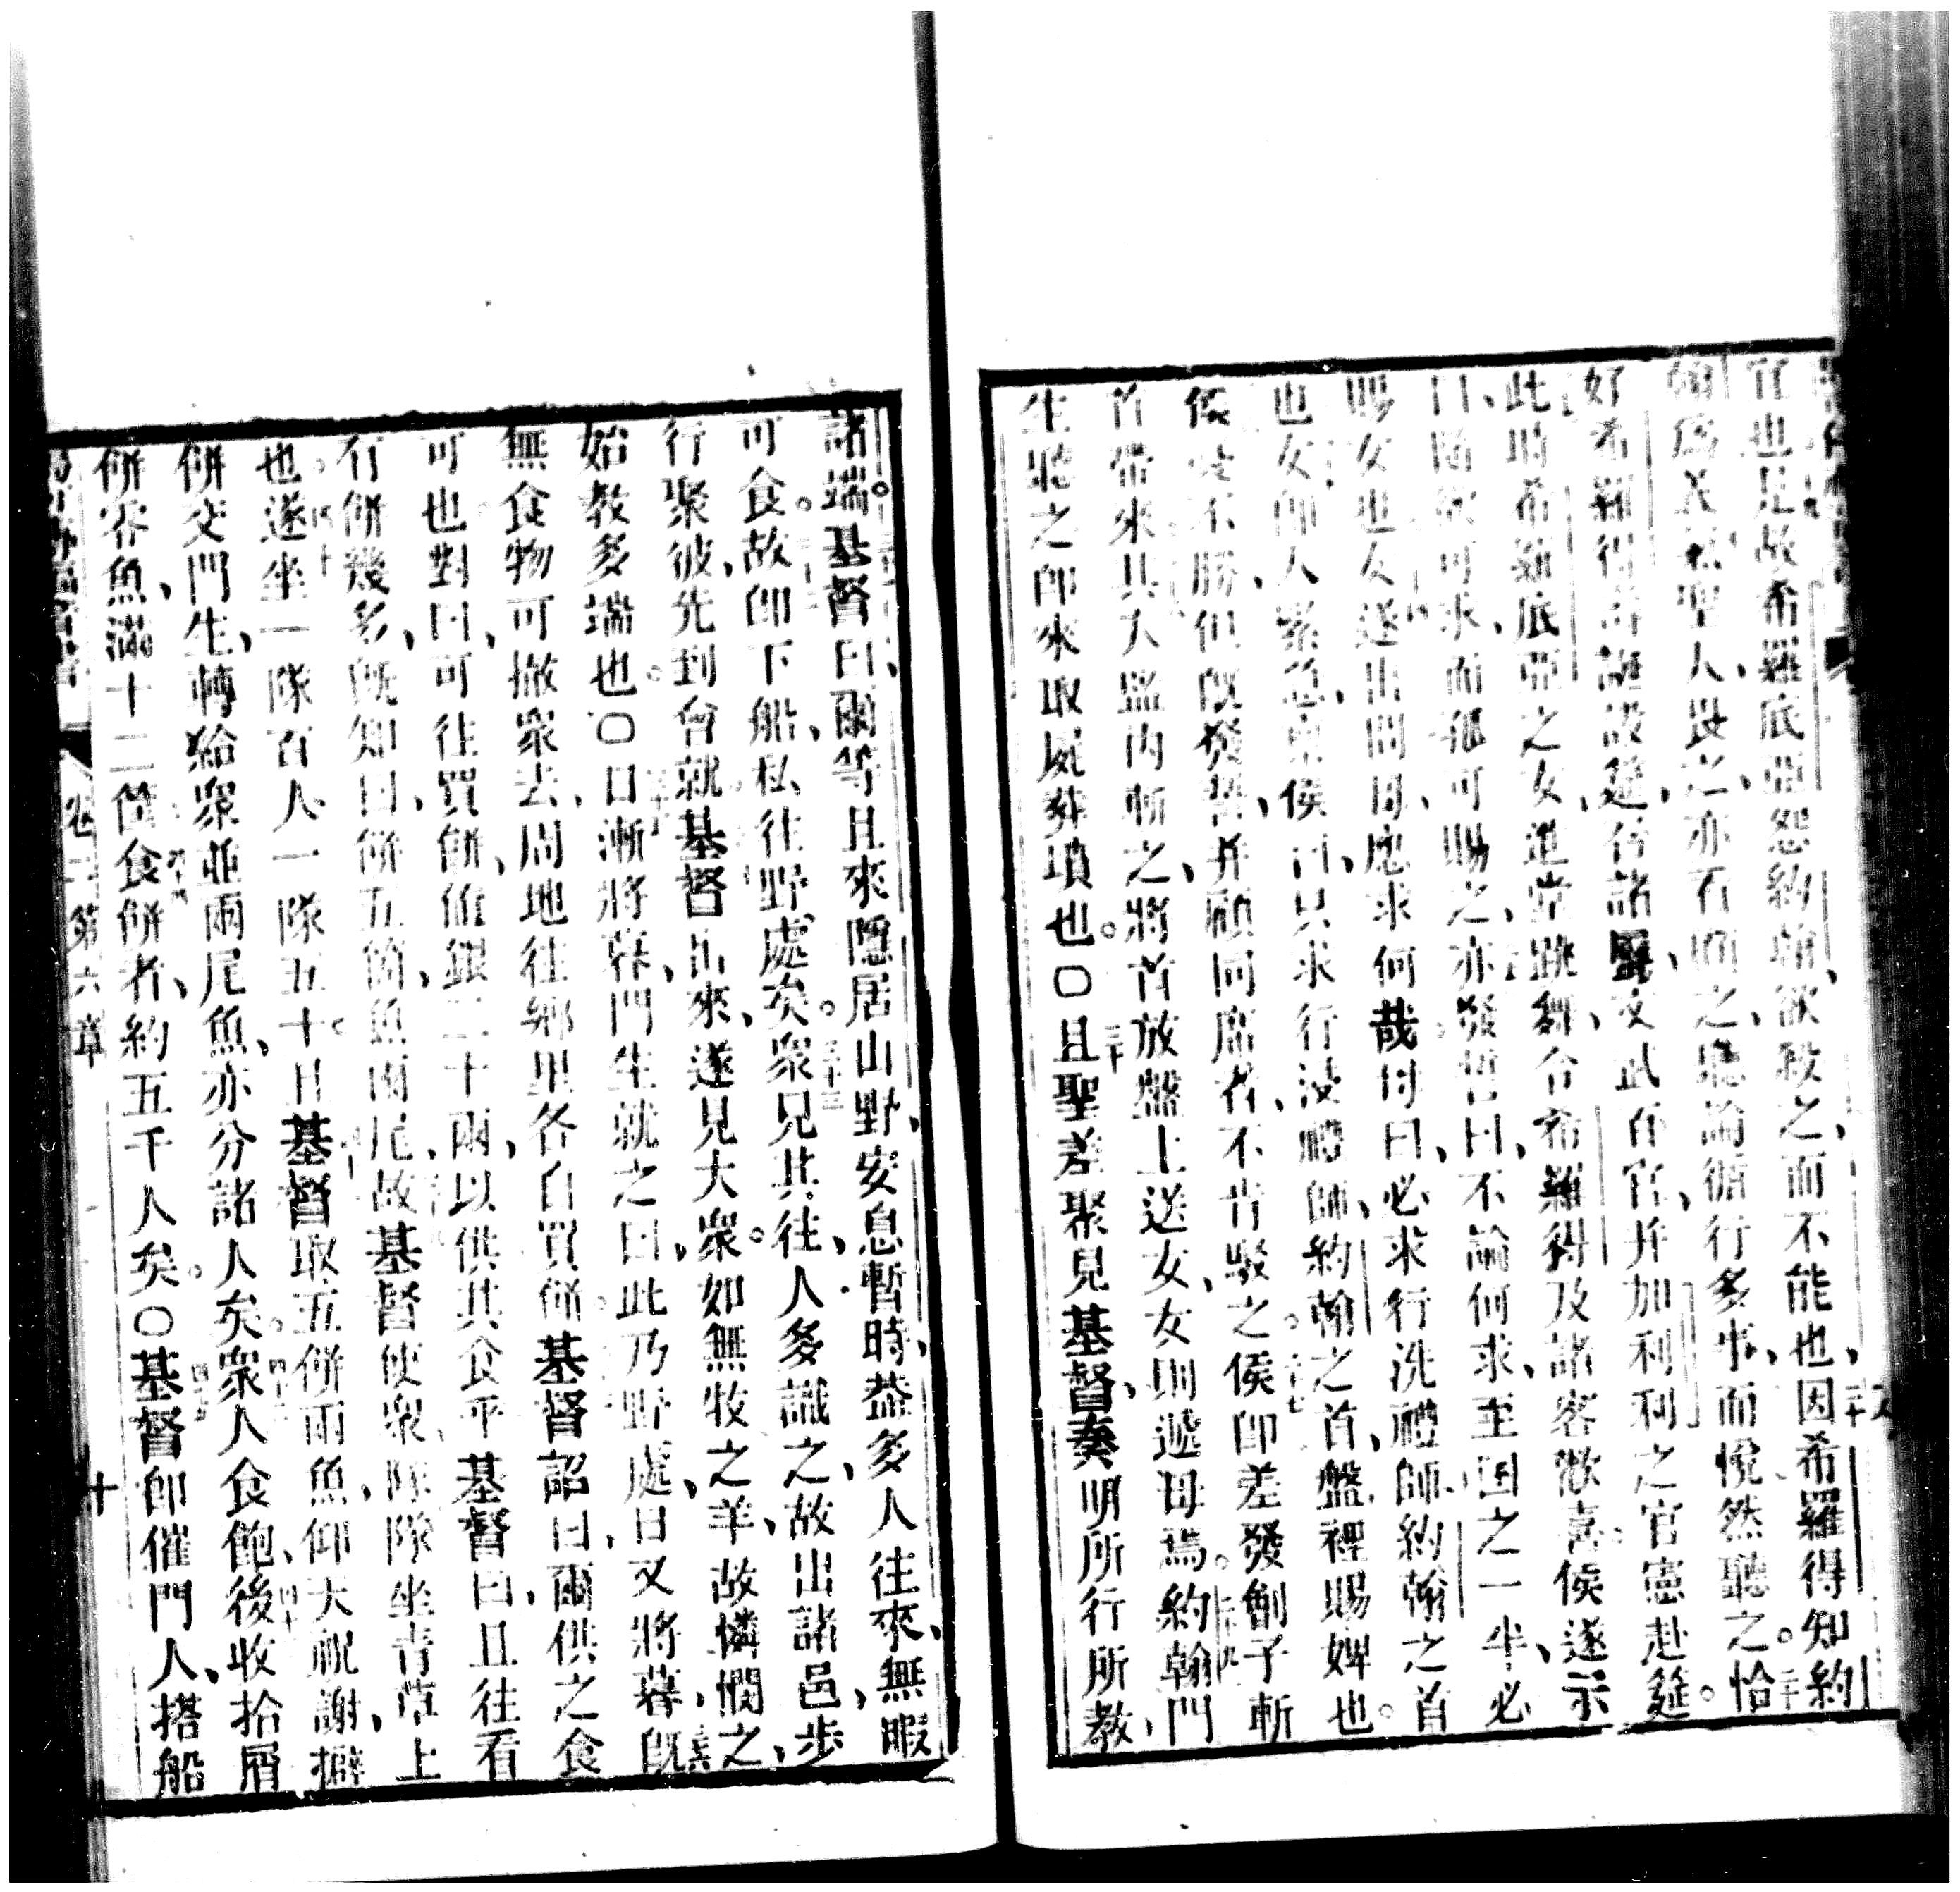 官也是故希羅底亞怨約翰、欲殺之、而不能也、因希羅得知約
翰爲義、爲聖人、畏之、亦有順之、聽諭循行多事、而悅然聽之。恰
好希羅得、誕設筵、召諸爵、文武百官、并加利利之官憲赴筵。
此時希羅底亞之女、進堂跳舞、令希羅得及諸客歡喜。侯遂示
曰、隨欲可求、而都可賜之、亦發誓曰、不論何求、至国之一半、必
賜女也、女遂出問母、應求何哉。母曰、必求行洗禮師約翰之首
也、女卽入緊急、侯曰、只求行浸禮師、約翰之首、盤裡賜婢也。
侯不勝、但既發誓、并顧同席者、不肯駁之。侯卽差發劊子斬
首帶來、其大監內斬之、將首放盤上送女、女則遞母焉。約翰門
生聽之卽來取屍葬墳也。〇且聖差聚見基督、奏明所行所教、
諸端。基督曰、爾等且來隱居山野、安息暫時、蓋多人往來、無暇
可食。故卽下船、私往野處矣。衆見其往、人多識之、故出諸邑、步
行聚彼、先到會就基督出來、遂見大衆。如無牧之羊、故憐憫之、
始教多端也。〇日漸將暮、門生就之曰、此乃野處、日又將暮、既
無食物可撤衆去、周地往鄉里、各自買餅。基督詔曰、爾供之食
可也、對曰、可往買餅、値銀二十兩、以供其食乎。基督曰、且往看
有餅幾多、既知曰、餅五箇、魚兩尾、故基督使衆、隊隊坐青草上
也。遂坐一隊百人、一隊五十。且基督取五餅兩魚、仰天祝謝、擗
餅交門生、轉給衆、並兩尾魚、亦分諸人矣。衆人食飽、後收拾屑
餅零魚、滿十二筐、食餅者、約五千人矣。〇基督卽催門人、搭船
卷二第六章 十